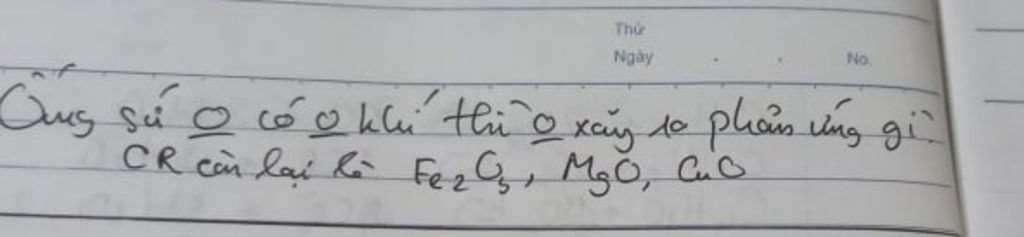 Thứ
Ngày . . No.
Ống sứ O có O khí thì O xảy ra phản ứng gì
CR còn lại là Fe₂O₃, MgO, CuO